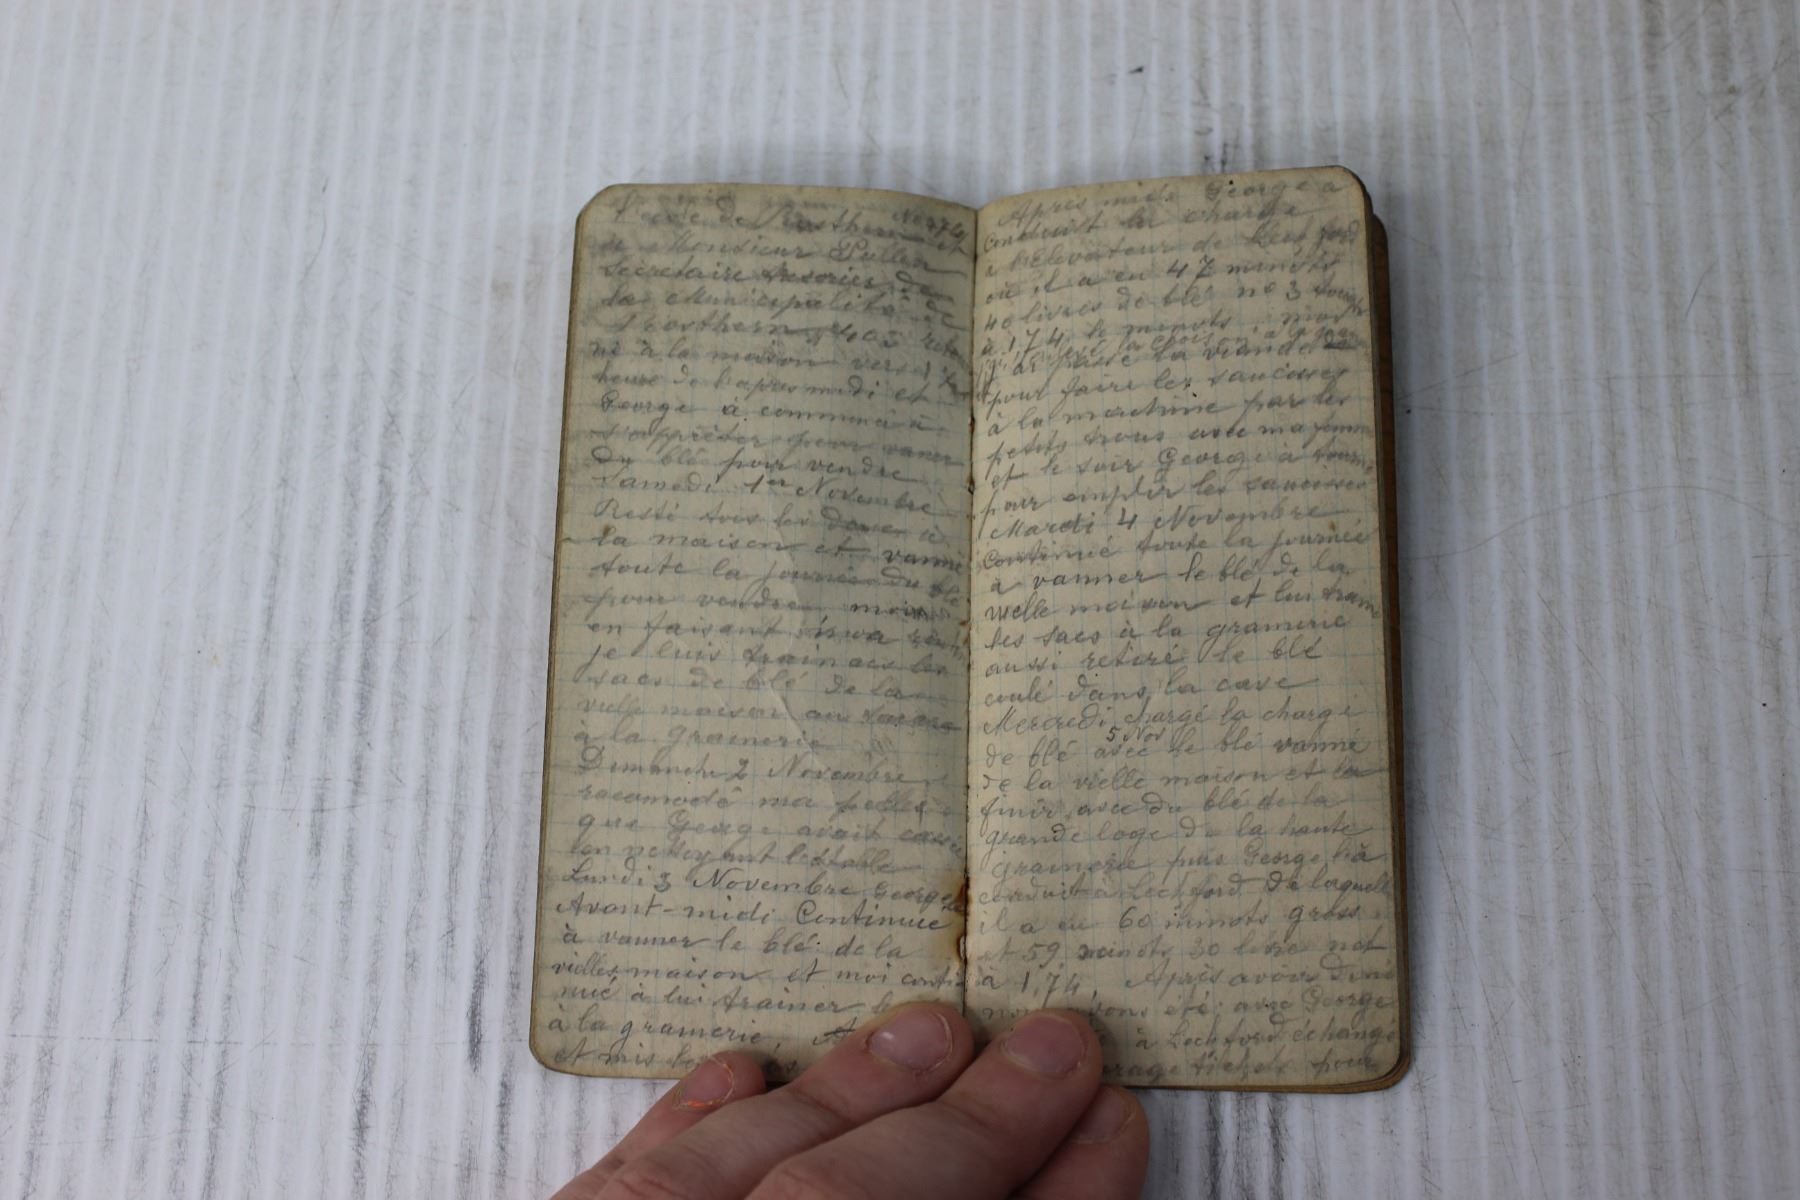 l'école de Rosthern No 974 et
a Monsieur Pullen
Secretaire tresorier de
la Municipalité de
Rosthern 403
à la maison vers 1
heure de l'apres midi et
George à commencé à
s'apprêter pour vaner
du blé pour vendre
Samedi 1er Novembre
Resté tous les deux à
la maison et vanné
toute la journée du blé
pour vendre moi
en faisant
je luis trainais les
sacs de blé de la
vielle maison au
à la grainerie
Dimanche 2 Novembre
racomodé ma pelle
que George avait cassée
en nettoyant l'étable
Lundi 3 Novembre George
Avant-midi Continué
à vanner le blé de la
vielles maison et moi conti-
nué à lui trainer
à la grainerie,
et mis les
Apres midi George a
conduit la charge
a l'elevateur de Leckford
ou il a eu 47 minots
40 livres de blé no 3
à 1,74 le minots moi
j'ai passé la viande
pour faire les saucisses
à la machine par les
petits trous avec ma femme
et le soir George à tourné
pour emplir les saucisses
Mardi 4 Novembre
Continué toute la journée
à vanner le blé de la
vielle maison et lui trainé
les sacs à la grainerie
aussi retiré le blé
coulé dans la cave
Mercredi 5 Nov chargé la charge
de blé avec le blé vanné
de la vielle maison et la
finir avec du blé de la
grande loge de la haute
grainerie puis George l'à
conduit à Leckford de laquelle
il a eu 60 minots gross
et 59 minots 30 livre net
à 1,74, Après avoir diné
nous avons été avec George
à Leckford échangé
tickets pour